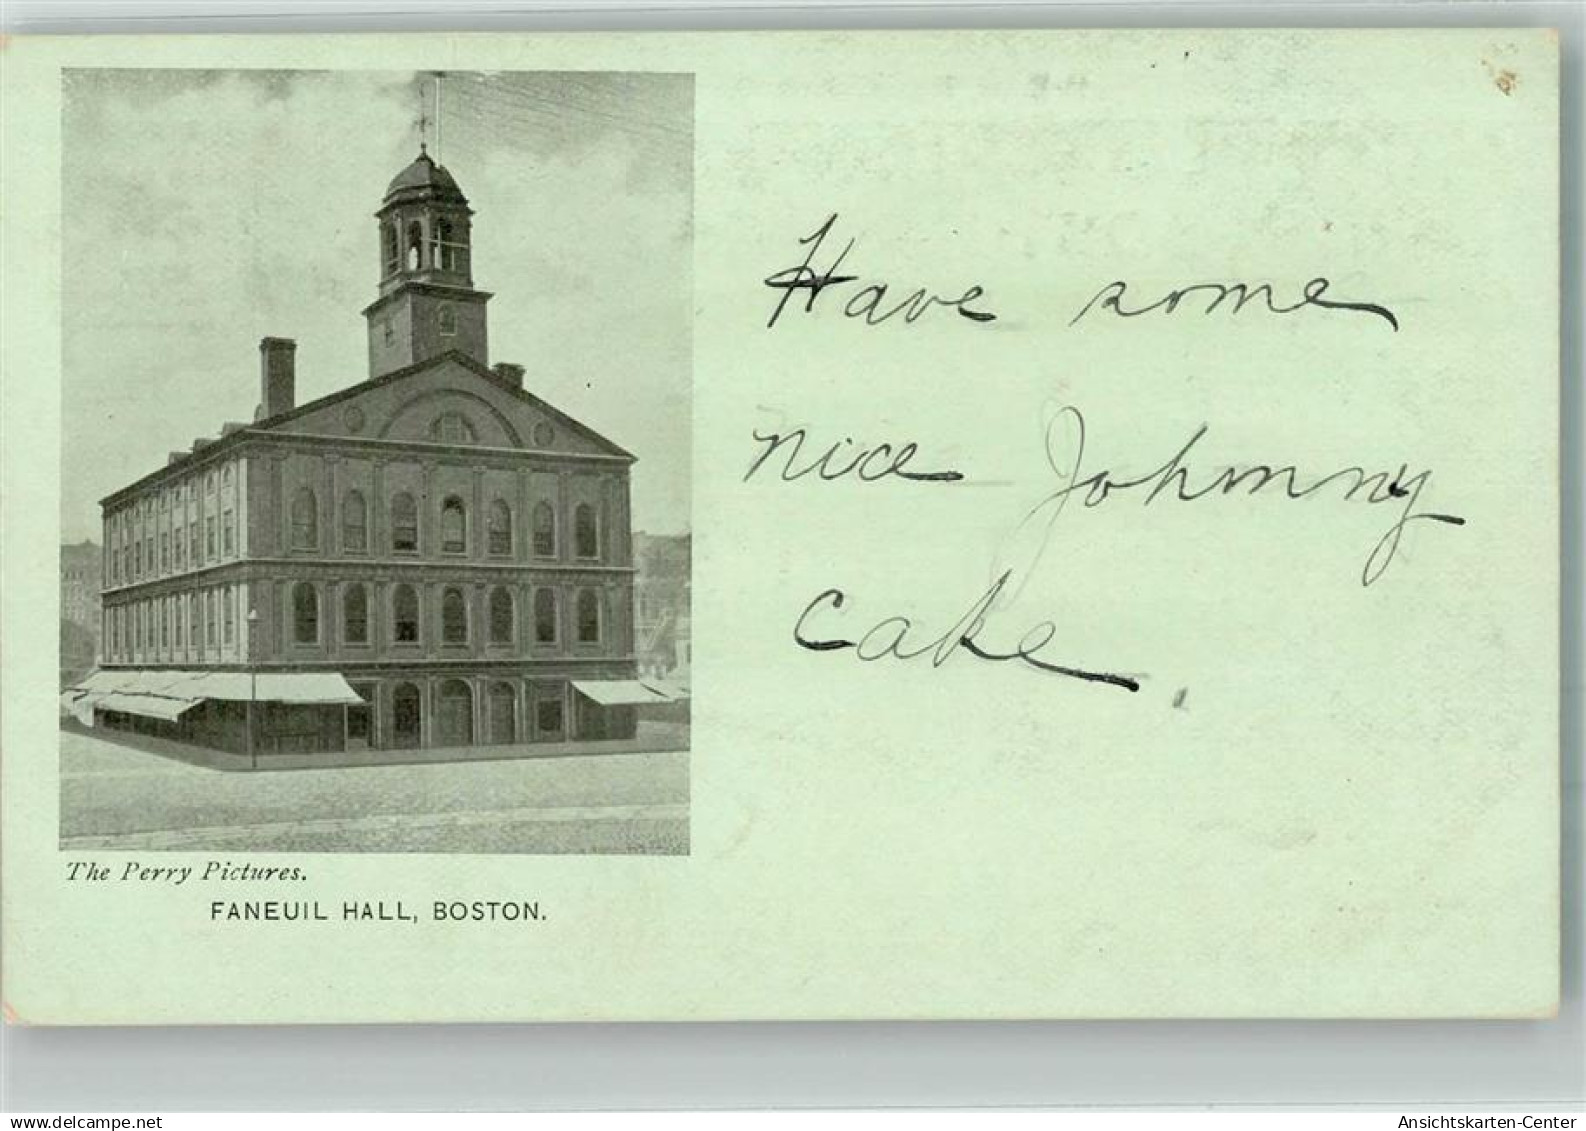 Have some
nice Johnny
cake.
The Perry Pictures.
FANEUIL HALL, BOSTON.
www.delcampe.net
Ansichtskarten-Center